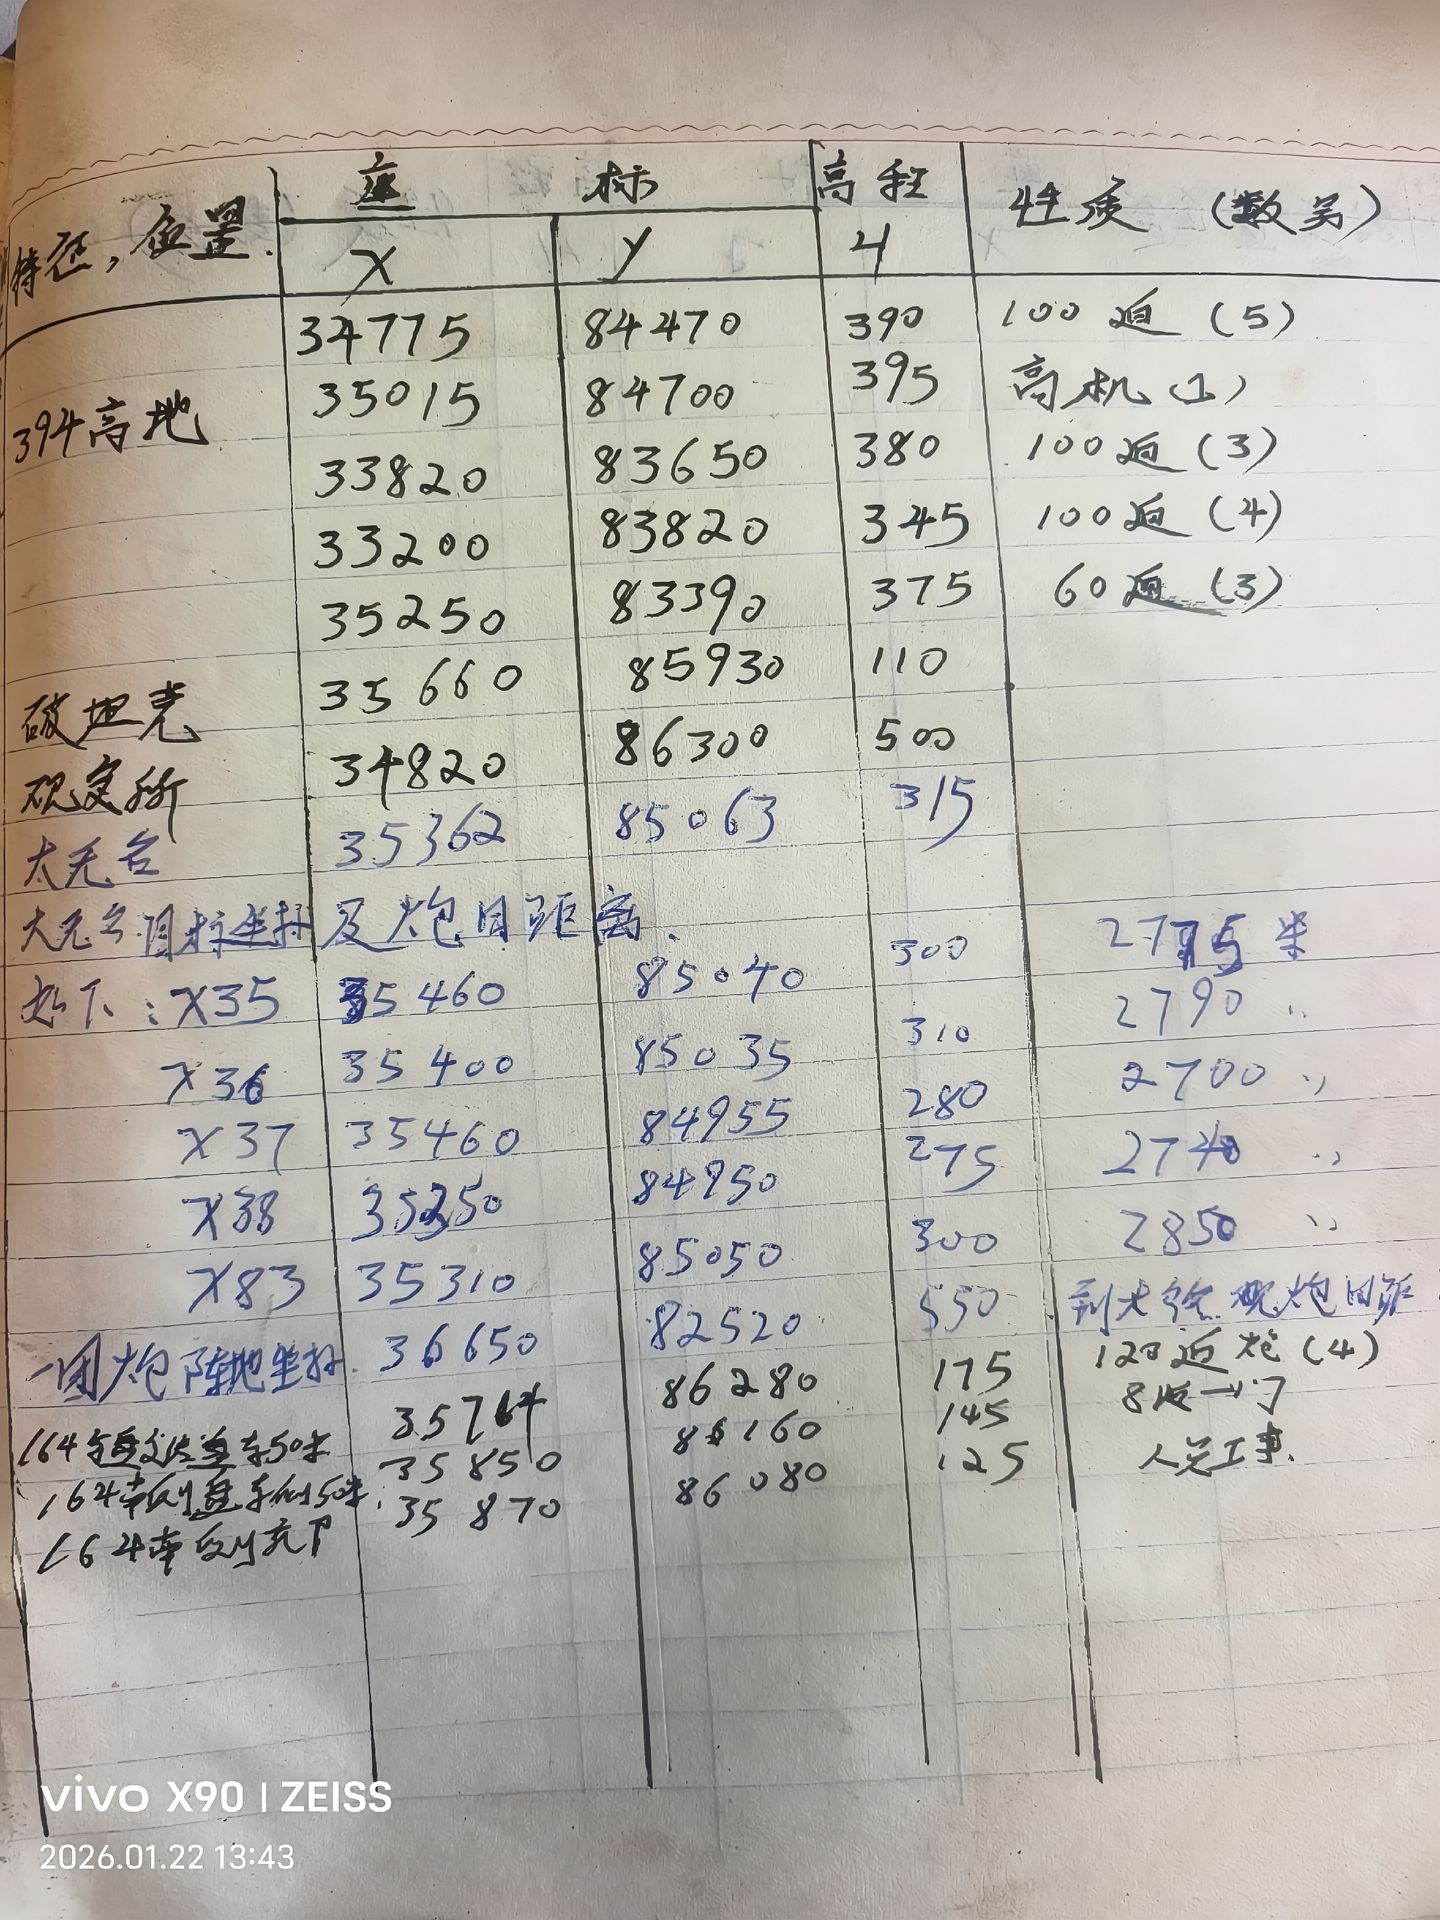 座 标 高程
特征,位置. X y H 性质 (数另)
34775 84470 390 100迫 (5)
394高地 35015 84700 395 高机 (1)
33820 83650 380 100迫 (3)
33200 83820 345 100迫 (4)
35250 83390 375 60迫 (3)
破坦克 35660 85930 110
观察所 34820 86300 500
大无名 35362 85063 315
大无名目标坐标及炮目距离.
如下: X35 35460 85040 300 2775米
X36 35400 85035 310 2790 〃
X37 35460 84955 280 2700 〃
X38 35350 84950 275 2740 〃
X83 35310 85050 300 2850 〃
一团炮阵地坐标. 36650 82520 550 到大 观炮目距
164 东50米 35764 86280 175 120迫炮 (4)
164南侧 50米. 35850 86160 145 8 一门
164南侧 35870 86080 125 工事.
vivo X90 | ZEISS
2026.01.22 13:43